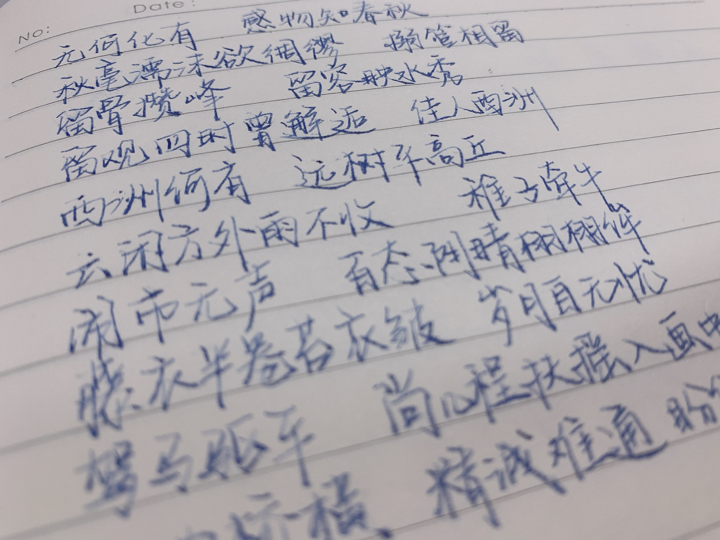 NO: Date:
无何化有 感物知春秋
秋毫濡沫欲绸缪 搦管相留
留骨攒峰 留容映水秀
留观四时曾邂逅 佳人西洲
西洲何有 远树平高丘
云闲方外雨不收 稚子牵牛
闹市无声 百态阴晴栩栩侔
藤衣半卷苔衣皱 岁月自无忧
驾马驱车 尚几程扶摇入画中
桥横 精诚难通 盼